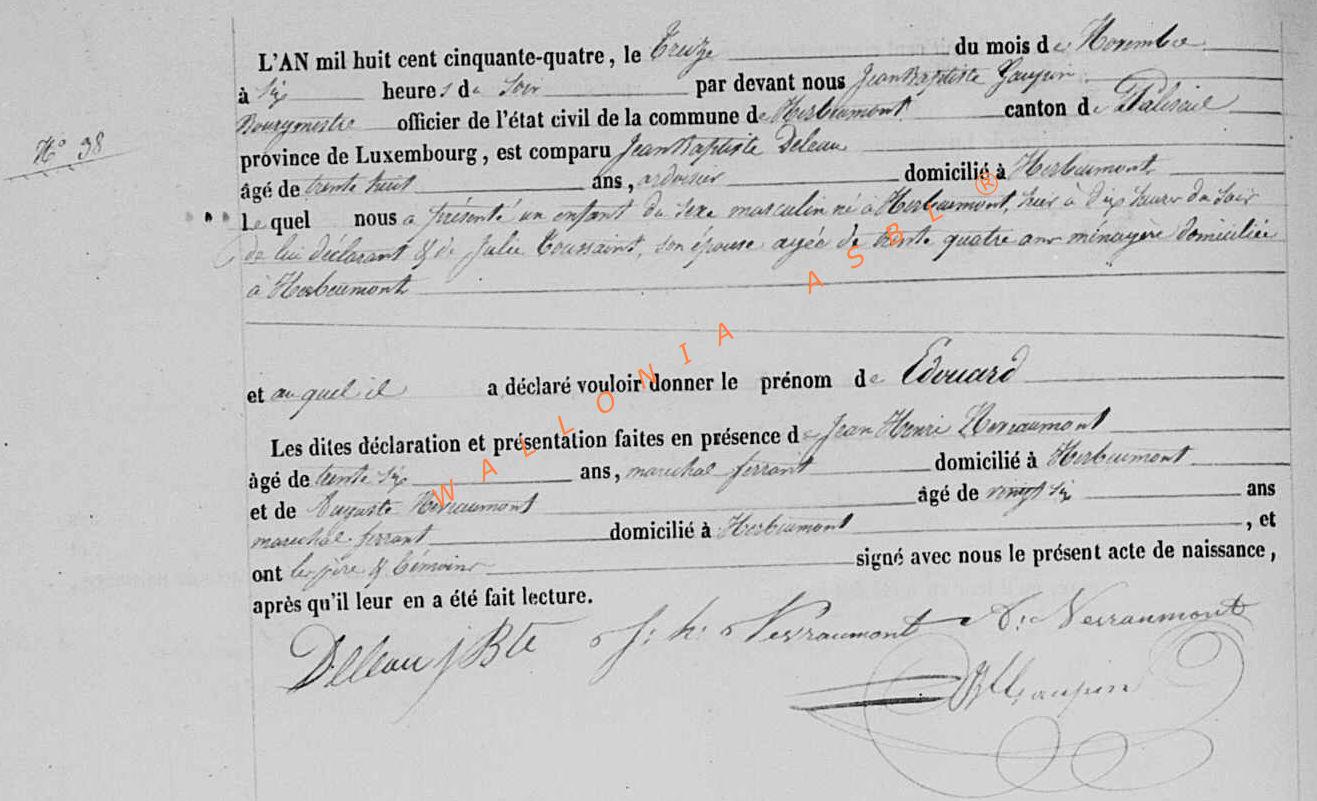 L'AN mil huit cent cinquante-quatre, le Treize du mois de Novembre
à six heures du soir par devant nous Jean Baptiste Gaupin
N° 38
Bourgmestre officier de l'état civil de la commune de Herbeumont canton de Paliseul
province de Luxembourg, est comparu Jean Baptiste Deleau
âgé de trente huit ans, ardoisier domicilié à Herbeumont
Le quel nous a présenté un enfant du sexe masculin né à Herbeumont, hier à dix heures du soir
de lui déclarant & de Julie Toussaint, son épouse agée de trente quatre ans ménagère domiciliée
à Herbeumont
et au quel il a déclaré vouloir donner le prénom de Edouard
Les dites déclaration et présentation faites en présence de Jean Henri
âgé de trente six ans, marechal ferrant domicilié à Herbeumont
et de Auguste âgé de vingt six ans
marechal ferrant domicilié à Herbeumont, et
ont les père & témoins signé avec nous le présent acte de naissance,
après qu'il leur en a été fait lecture.
Deleau J Bte J: h: Nerraumont A: Nerraumont
JB Gaupin
WALLONIA ASBL ®